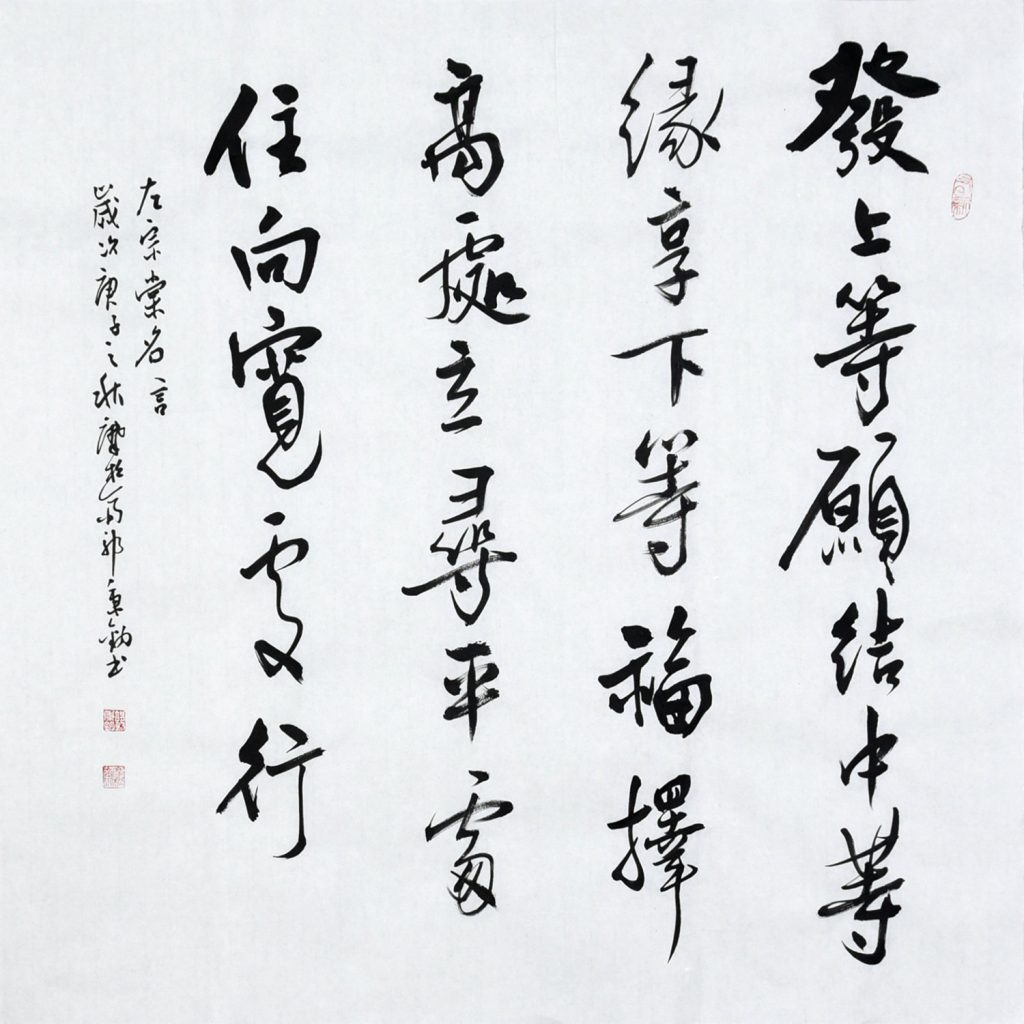 發上等願結中等
緣享下等福擇
高處立尋平處
住向寬處行
左宗棠名言
歲次庚子之秋